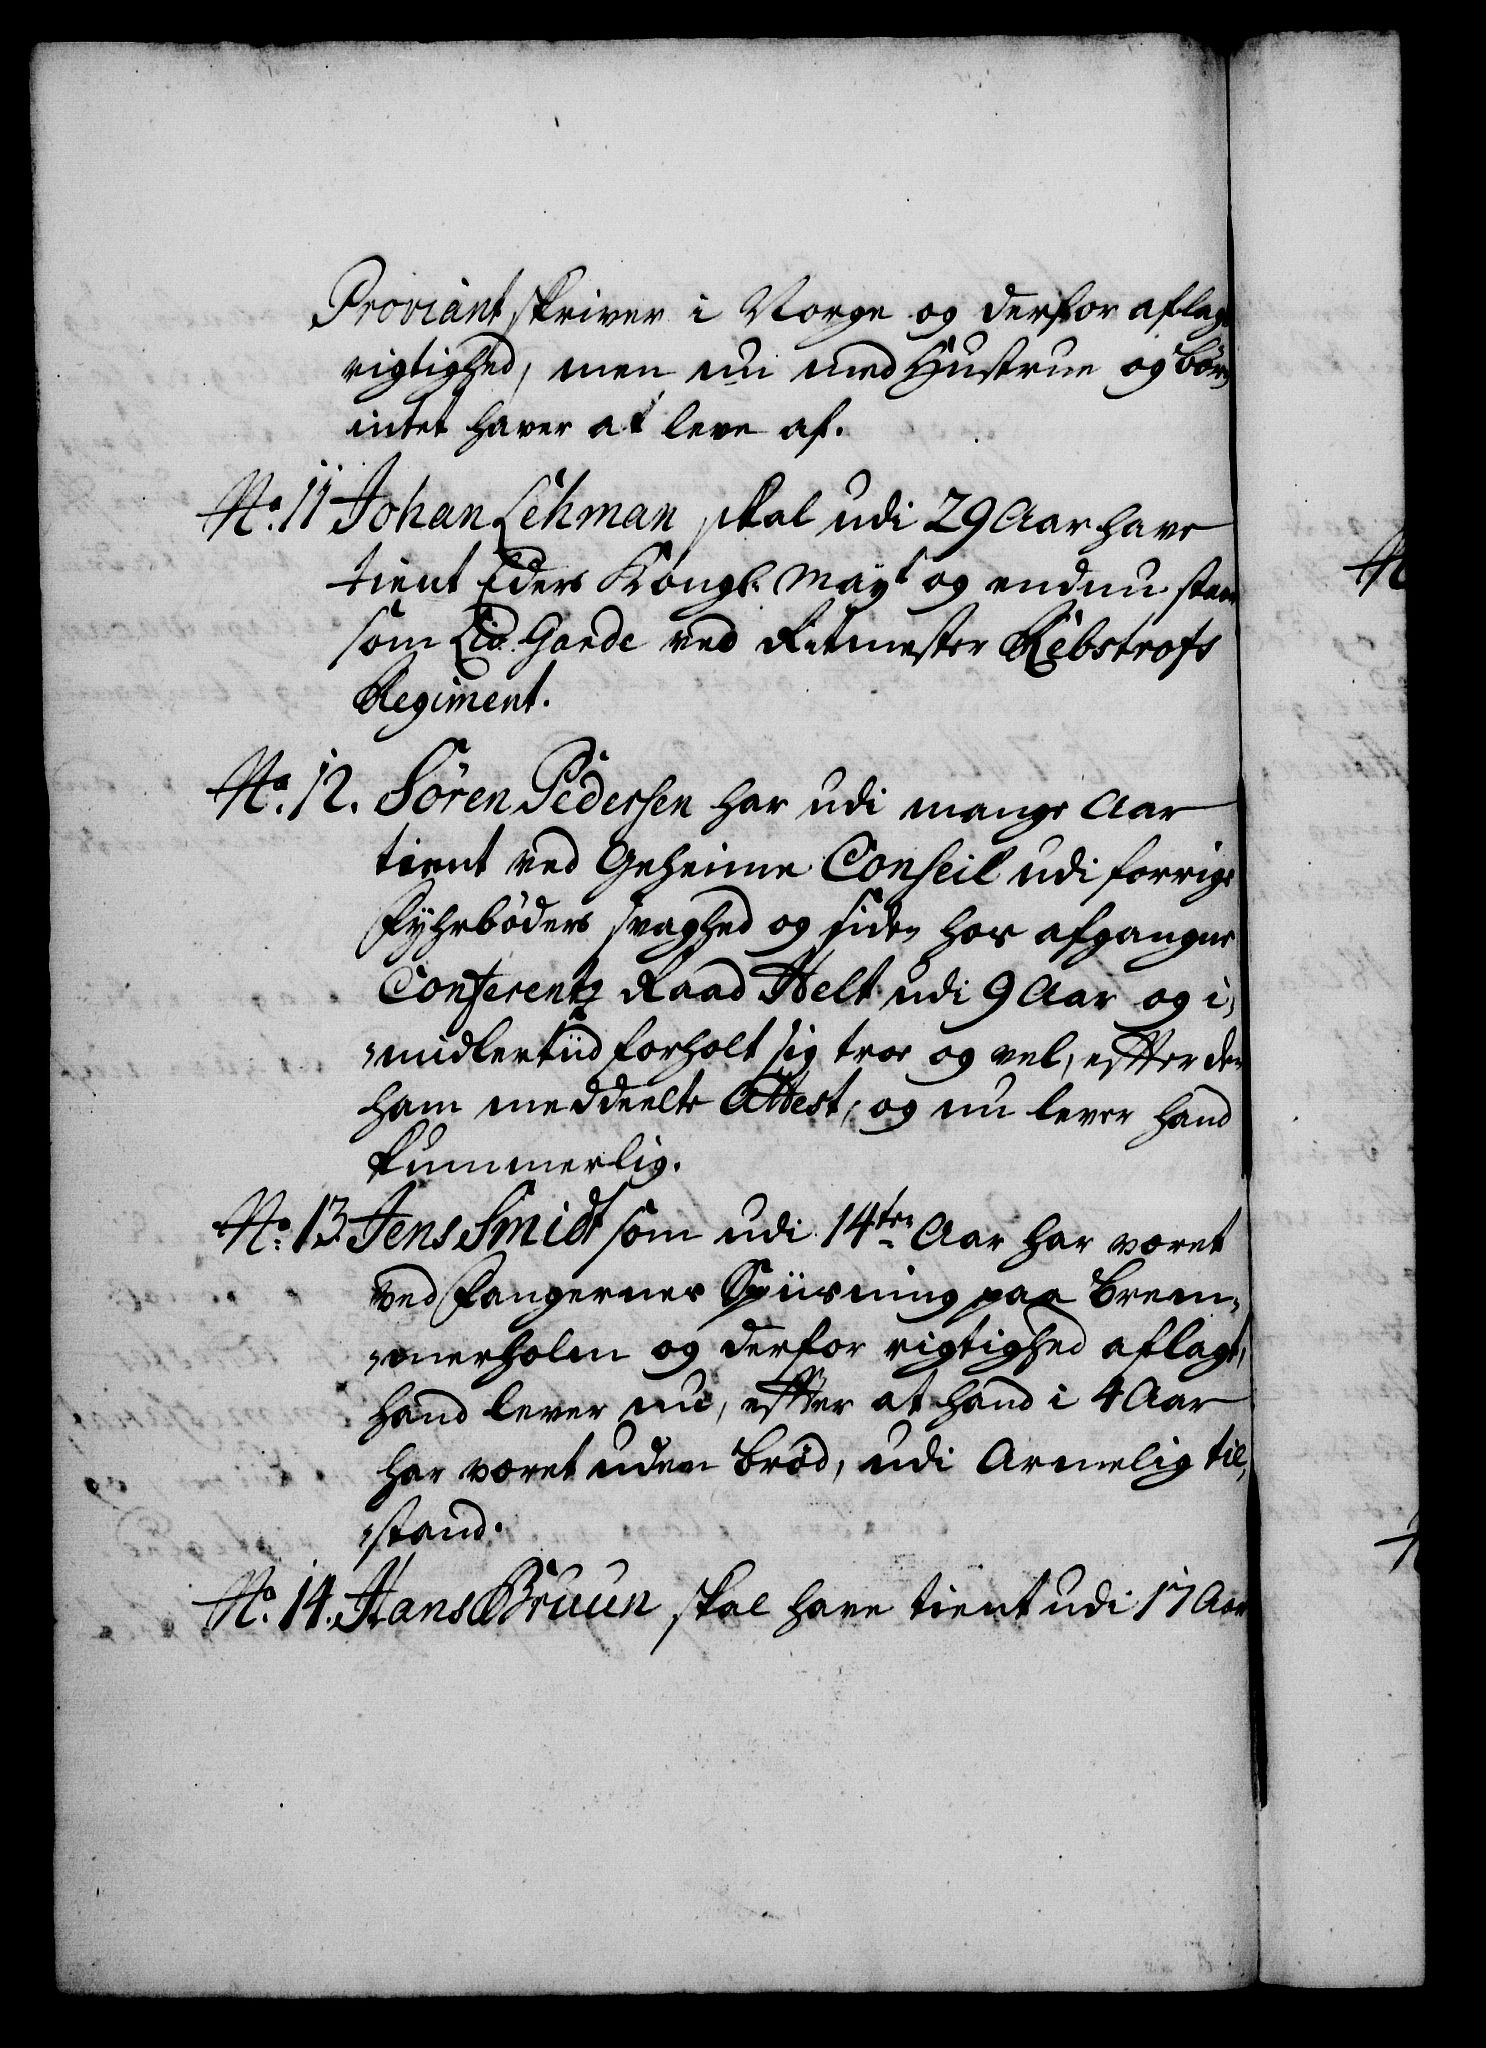 Proviantskriver i Norge og derfor aflagt
rigtighed, men nu med Hustrue og børn
intet haver at leve af.
No. 11 Johan Lehman skal udi 29 Aar have
tient Eders Kongl. Mayt og endnu staar
som Liv Garde ved Ritmester Rebstrofs
Regiment.
No. 12. Sören Pedersen har udi mange Aar
tient ved Geheime Conseil udi forrige
Fyhrbøders svaghed og siden hos afgangne
Conferentz Raad Helt udi 9 Aar og i,
„midlertiid forholt sig troe og vel, effter den
ham meddeelte Attest, og nu lever hand
kummerlig.
No. 13 Jens Smidt som udi 14ten Aar har været
ved Fangernes Spiisning paa Brem„
„merholm og derfor rigtighed aflagt,
hand lever nu, effter at hand i 4 Aar
har været uden brød, udi Armelig til„
„stand.
No. 14. Hans Bruun skal have tient udi 17 Aar